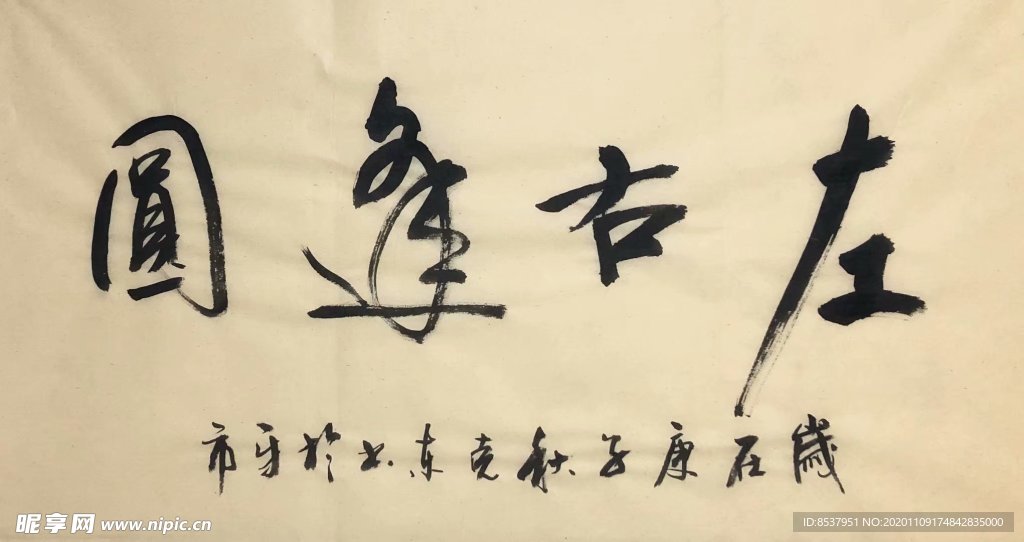 左右逢圓
歲在庚子秋克東书於牙市
昵享网 www.nipic.cn
ID:8537951 NO:20201109174842835000